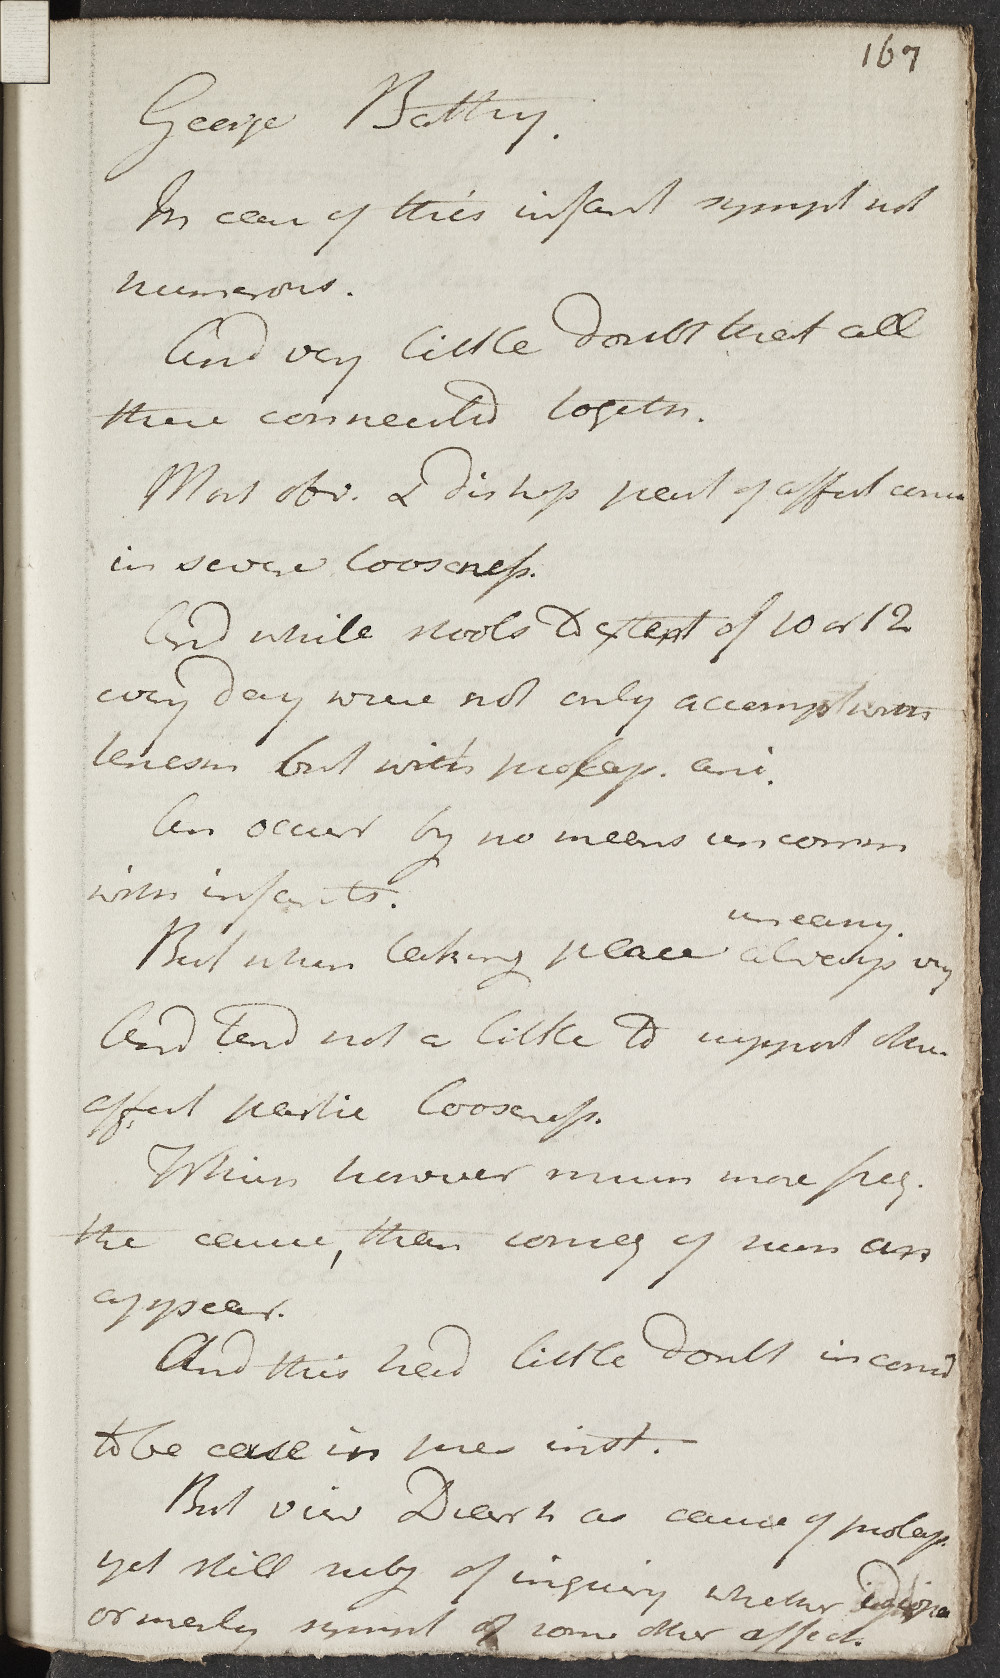 167
George Battry.
In case of this infant sympt not
numerous.
And very little doubt that all
these connected togethr.
Most obv. & distress part of affect cons
in severe looseness.
And while stools to extent of 10 or 12
every day were not only accompd with
tenesm but with prolap. ani.
An occurr by no means uncomm
with infants.
uneasy.
But when taking place always vy
And tend not a little to support other
affect partic looseness.
Which however much more freq.
the cause, than conseq of such an
appear.
And this had little doubt in consid
to be case in pres inst.-
But view Diarrh as cause of prolap.
yet still subj of inquiry whether idiopa
or merely sympt of some other affect.